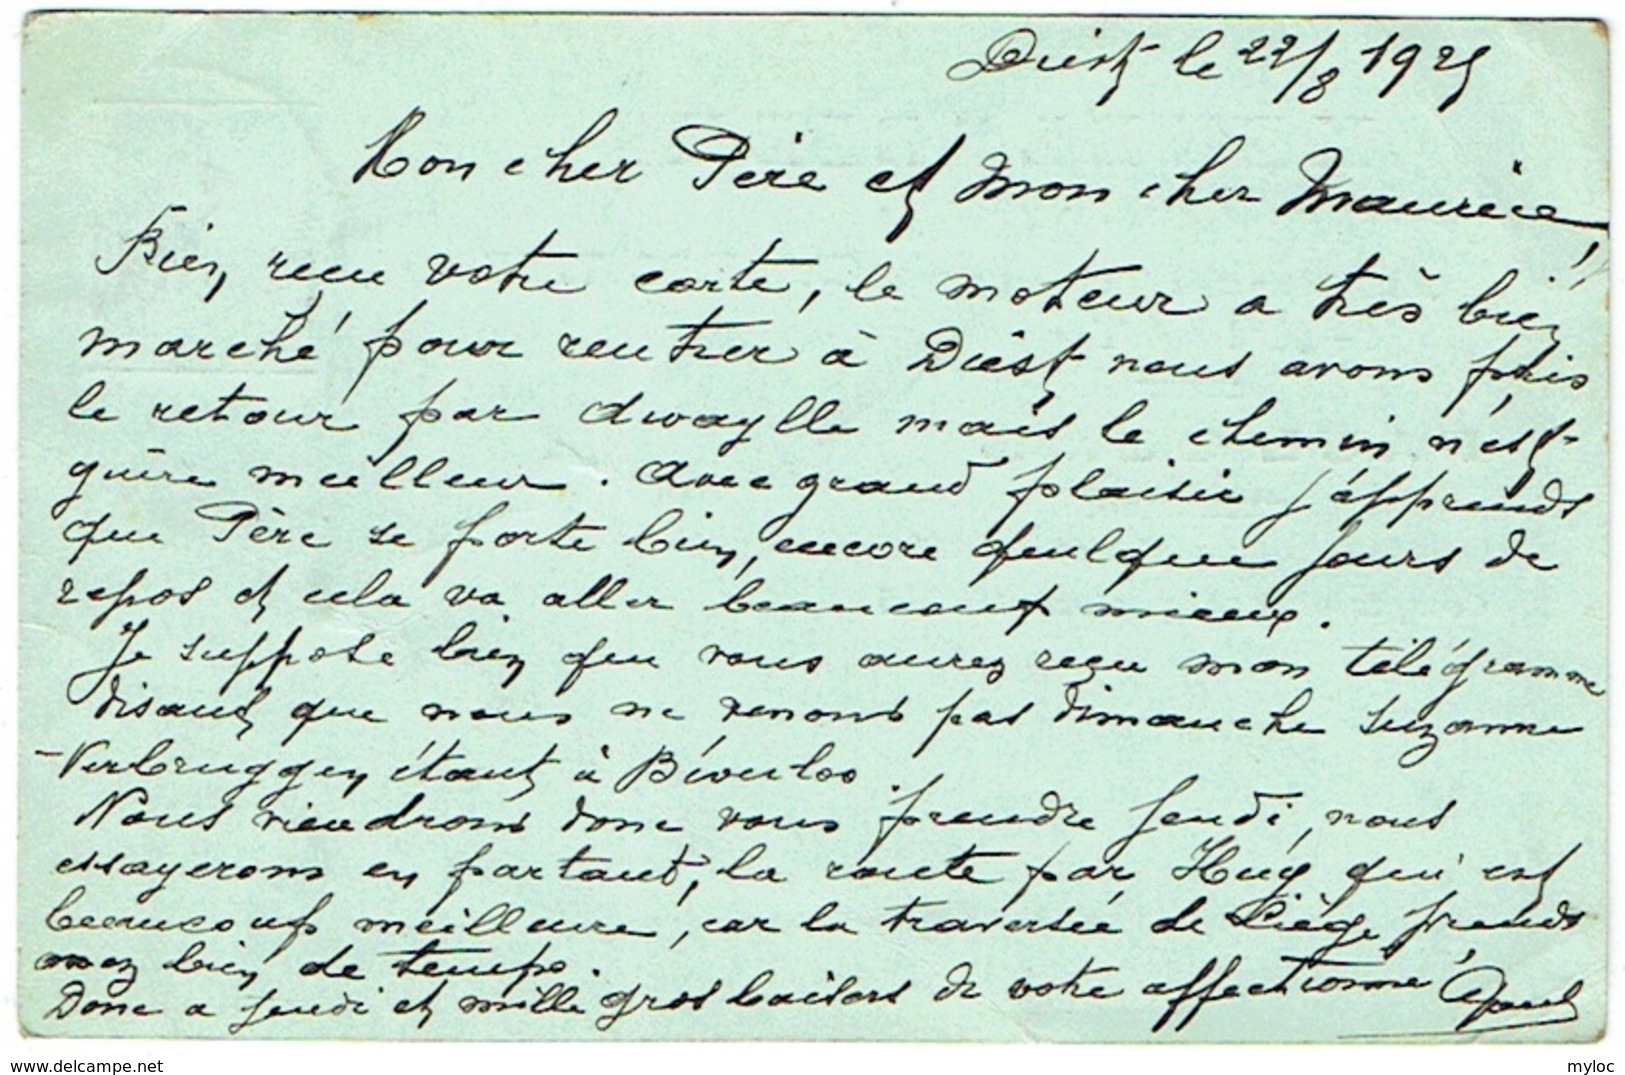 Diest le 22/8 1925
Mon cher Père et mon cher Maurice,
Bien reçu votre carte, le moteur a très bien
marché pour rentrer à Diest, nous avons pris
le retour par Aywaylle mais le chemin n'est
guère meilleur. Avec grand plaisir j'apprends
que Père se porte bien, encore quelque jours de
repos et cela va aller beaucoup mieux.
Je suppose bien que vous aurez reçu mon télégramme
disant que nous ne venons pas dimanche Suzanne
Verbruggen étant à Béverloo.
Nous viendrons donc vous prendre jeudi, nous
essayerons en partant, la route par Huy qui est
beaucoup meilleure, car la traversée de Liège prends
assez bien de temps.
Donc a jeudi et mille gros baisers de votre affectionné, Paul
myloc